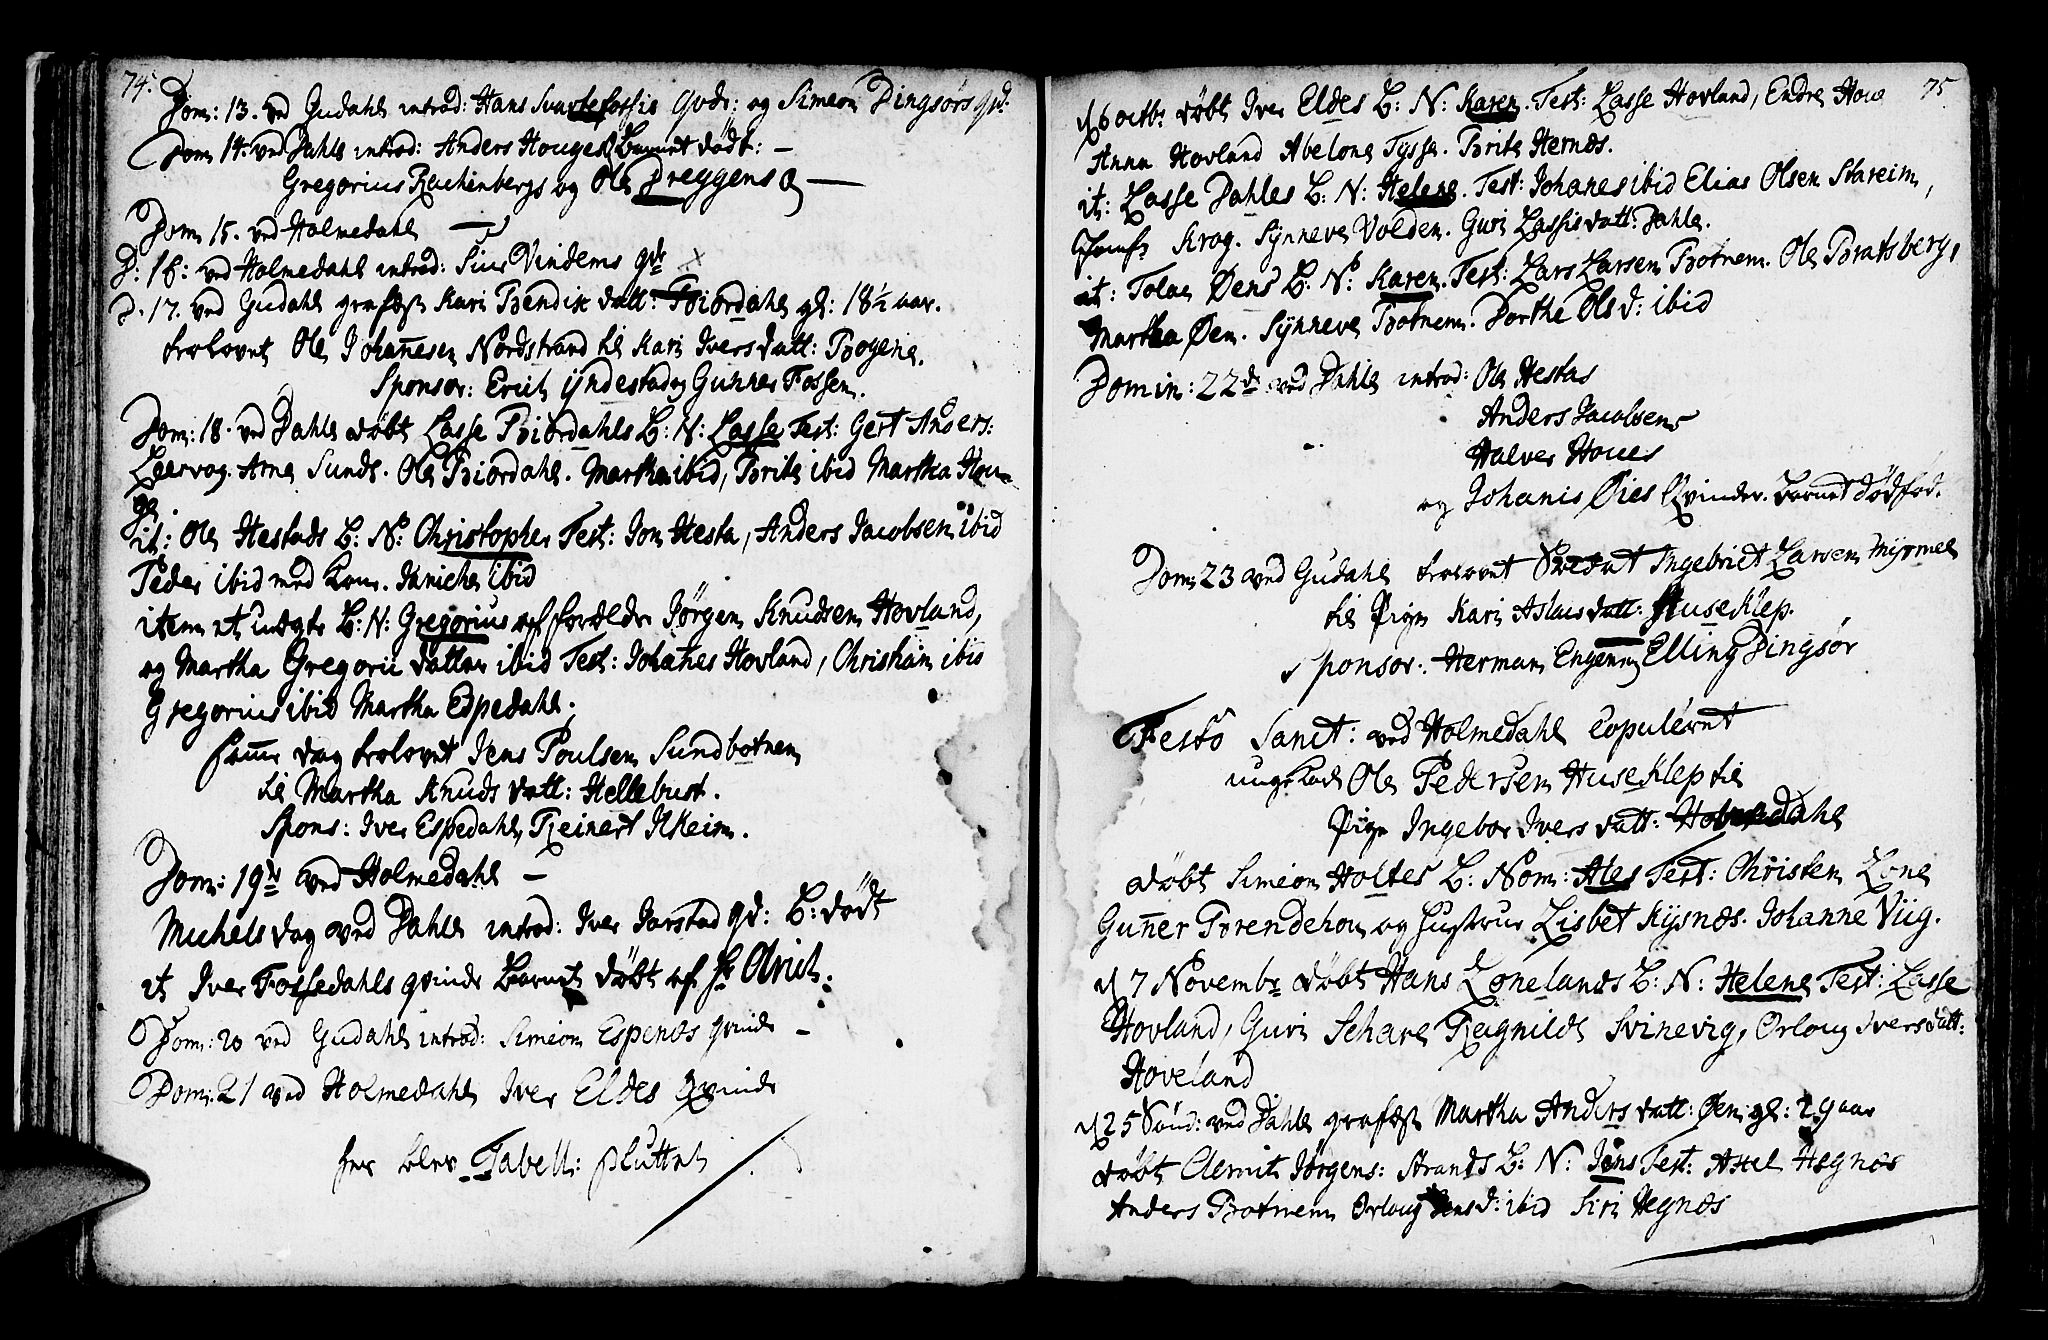 74.
Dom: 13. ved Gudahl introd: Hans Svartefossis qvdr: og Simeon Dingsörs qd:
Dom 14. ved Dahle introd: Anders Houges Barnet dödt: —
Gregorius Rachenbergs og Ole Dreggens Q —
Dom 15. ved Holmedahl —
D: 16: ved Holmedahl introd: Siur Vindems qde
D. 17. ved Gudahl grafæst Kari Bendix datt: Biordahl gl: 18½ aar.
trolovet Ole Johannesen Nordstrand til Kari Ivers datt: Bogene.
Sponsor: Erich Yndestad og Gunner Fossen.
Dom: 18. ved Dahle döbt Lasse Biordahls B: N: Lasse Test: Gert Anders:
Leervog. Arne Sunde. Ole Biordahl. Martha ibid, Brite ibid Martha Hou-
ge.
it: Ole Hestads B: N: Christopher Test: Jon Hesta, Anders Jacobsen ibid
Peder ibid med Kone. Janiche ibid
item et uægte B: N: Gregorius af forældre Jörgen Knudsen Hovland,
og Martha Gregorii datter ibid Test: Johanes Hovland, Christian ibid
Gregorius ibid Martha Espedahl.
samme dag trolovet Jens Poulsen Sundbotnen
til Martha Knuds datt: Hellebust.
Spons: Iver Espedahl, Reinert Ikeim.
Dom: 19de ved Holmedahl —
Michelsdag ved Dahle introd: Iver Jarstad qd: B: dödt
it Iver Fossedahls qvinde Barnet döbt af Hr Olrich:
Dom: 20 ved Gudahl introd: Simeon Espenes qvinde —
Dom: 21 ved Holmedahl Iver Eldes Qvinde
her blev Tabell: sluttet
75
d 6 octbr döbt Iver Eldes B: N: Karen. Test: Lasse Hovland, Endre Houe
Anna Hovland Abelone Tysse. Brite Hernes.
it: Lasse Dahles B: N: Helene. Test: Johanes ibid Elias Olsen Stareim,
Krog. Synneve Volden. Guri Lassis datt: Dahle.
it: Tolae Öens B: N: Karen. Test: Lars Larsen Botnen. Ole Bratsberg,
Martha Öen. Synneve Botnen. Dorthe Ols d: ibid
Domin: 22de ved Dahle introd: Ole Hestas
Anders Jacobsens
Halver Houes
og Johanis Öies Qvinder. Barnet dödföd.
Dom 23 ved Gudahl trolovet Ingebrict Larsen Myrmel
til Pigen Kari Aslaus datt: Huseklep.
Sponsor: Herman Engen Elling Dingsör
Festo Sanct: ved Holmedahl Copuleret
unge Karl Ole Pedersen Huseklep til
Pige Ingebor Ivers datt: Holmedahl
döbt Simeon Holtes B: Nom: Ales Test: Christen Lone
Gunner Brendehou og hustrue Lisbet Kysnes. Johanne Viig.
d 7 Novembr döbt Hans Lonelands B: N: Helene Test: Lasse
Hovland, Guri Schare Ragnilde Svinevig, Orloug Ivers datt:
Hoveland
d 25 Sönd: ved Dahle grafæst Martha Anders datt: Öen gl: 29 aar
döbt Clemit Jörgens: Strands B: N: Jens Test: Axel Hegnes
Anders Botnen Orloug Jens d: ibid Siri Hegnes